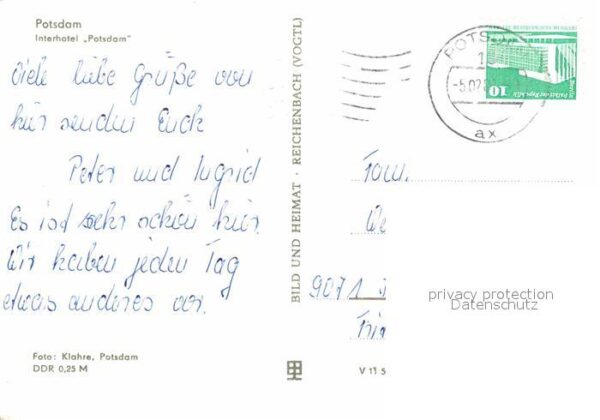 Potsdam
Interhotel „Potsdam"
Viele liebe Grüße von
hier senden Euch
Peter und Ingrid
Es ist sehr schön hier.
Wir haben jeden Tag
etwas anderes vor.
Foto: Klahre, Potsdam
DDR 0,25 M
BILD UND HEIMAT · REICHENBACH (VOGTL)
V 11 5
POTSD
1
-5.07.8
ax
10
DDR
Fam.
We
9071
privacy protection
Datenschutz